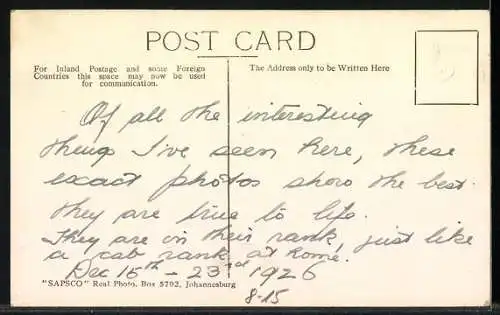 POST CARD
For Inland Postage and some Foreign
Countries this space may now be used
for communication.
The Address only to be Written Here
Of all the interesting
things I've seen here, these
exact photos show the best.
They are true to life.
They are in their rank, just like
a cab rank at home.
Dec 15th - 23rd 1926
"SAPSCO" Real Photo, Box 5792, Johannesburg
8-15